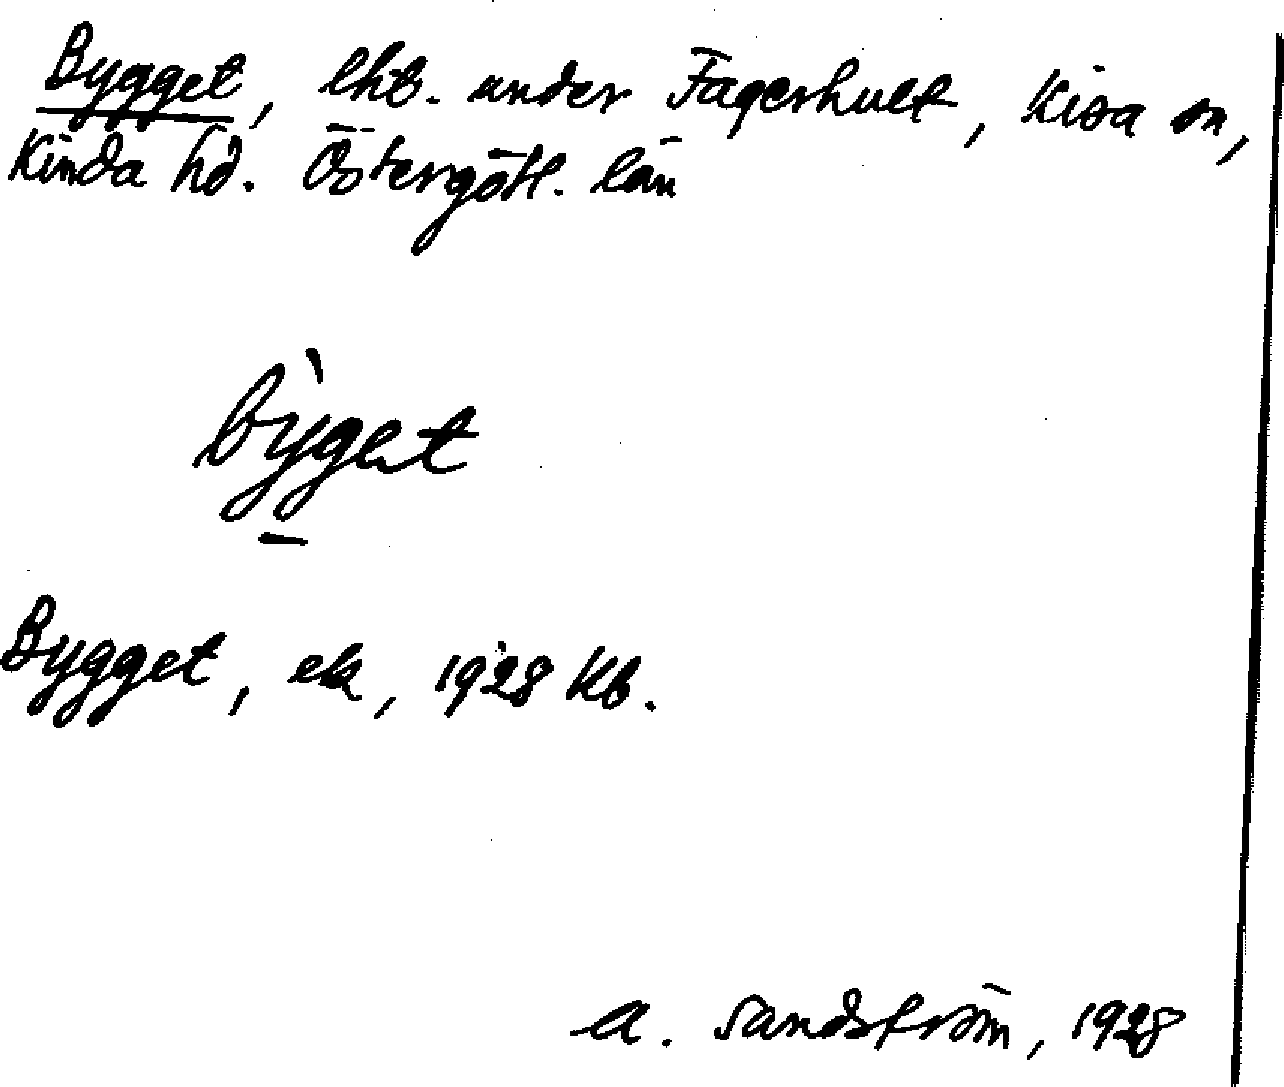 Bygget, lht. under Fagerhult, Kisa sn,
Kinda hd. Östergötl. län
bỳget
Bygget, ek, 1928 Kb.
A. Sandström, 1928